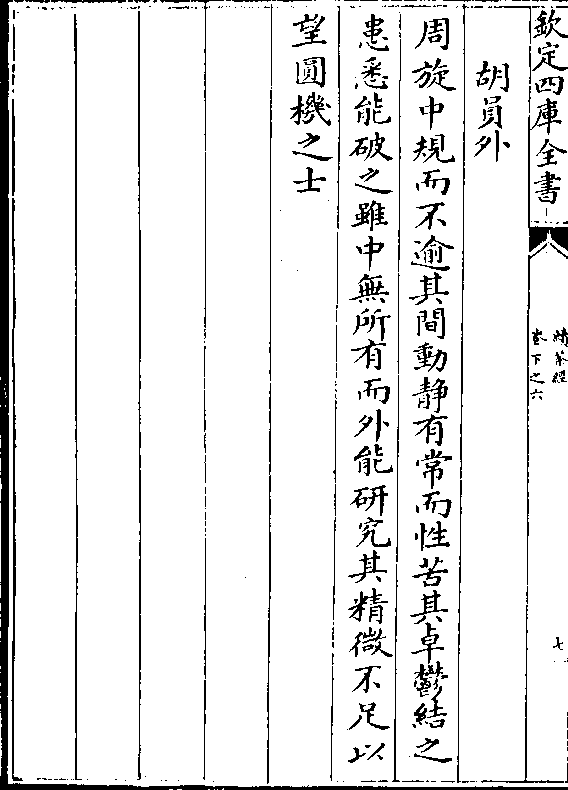 欽定四庫全書
續茶經
卷下之六
七
胡員外
周旋中規而不逾其間動靜有常而性苦其卓鬱結之
患悉能破之雖中無所有而外能研究其精微不足以
望圓機之士